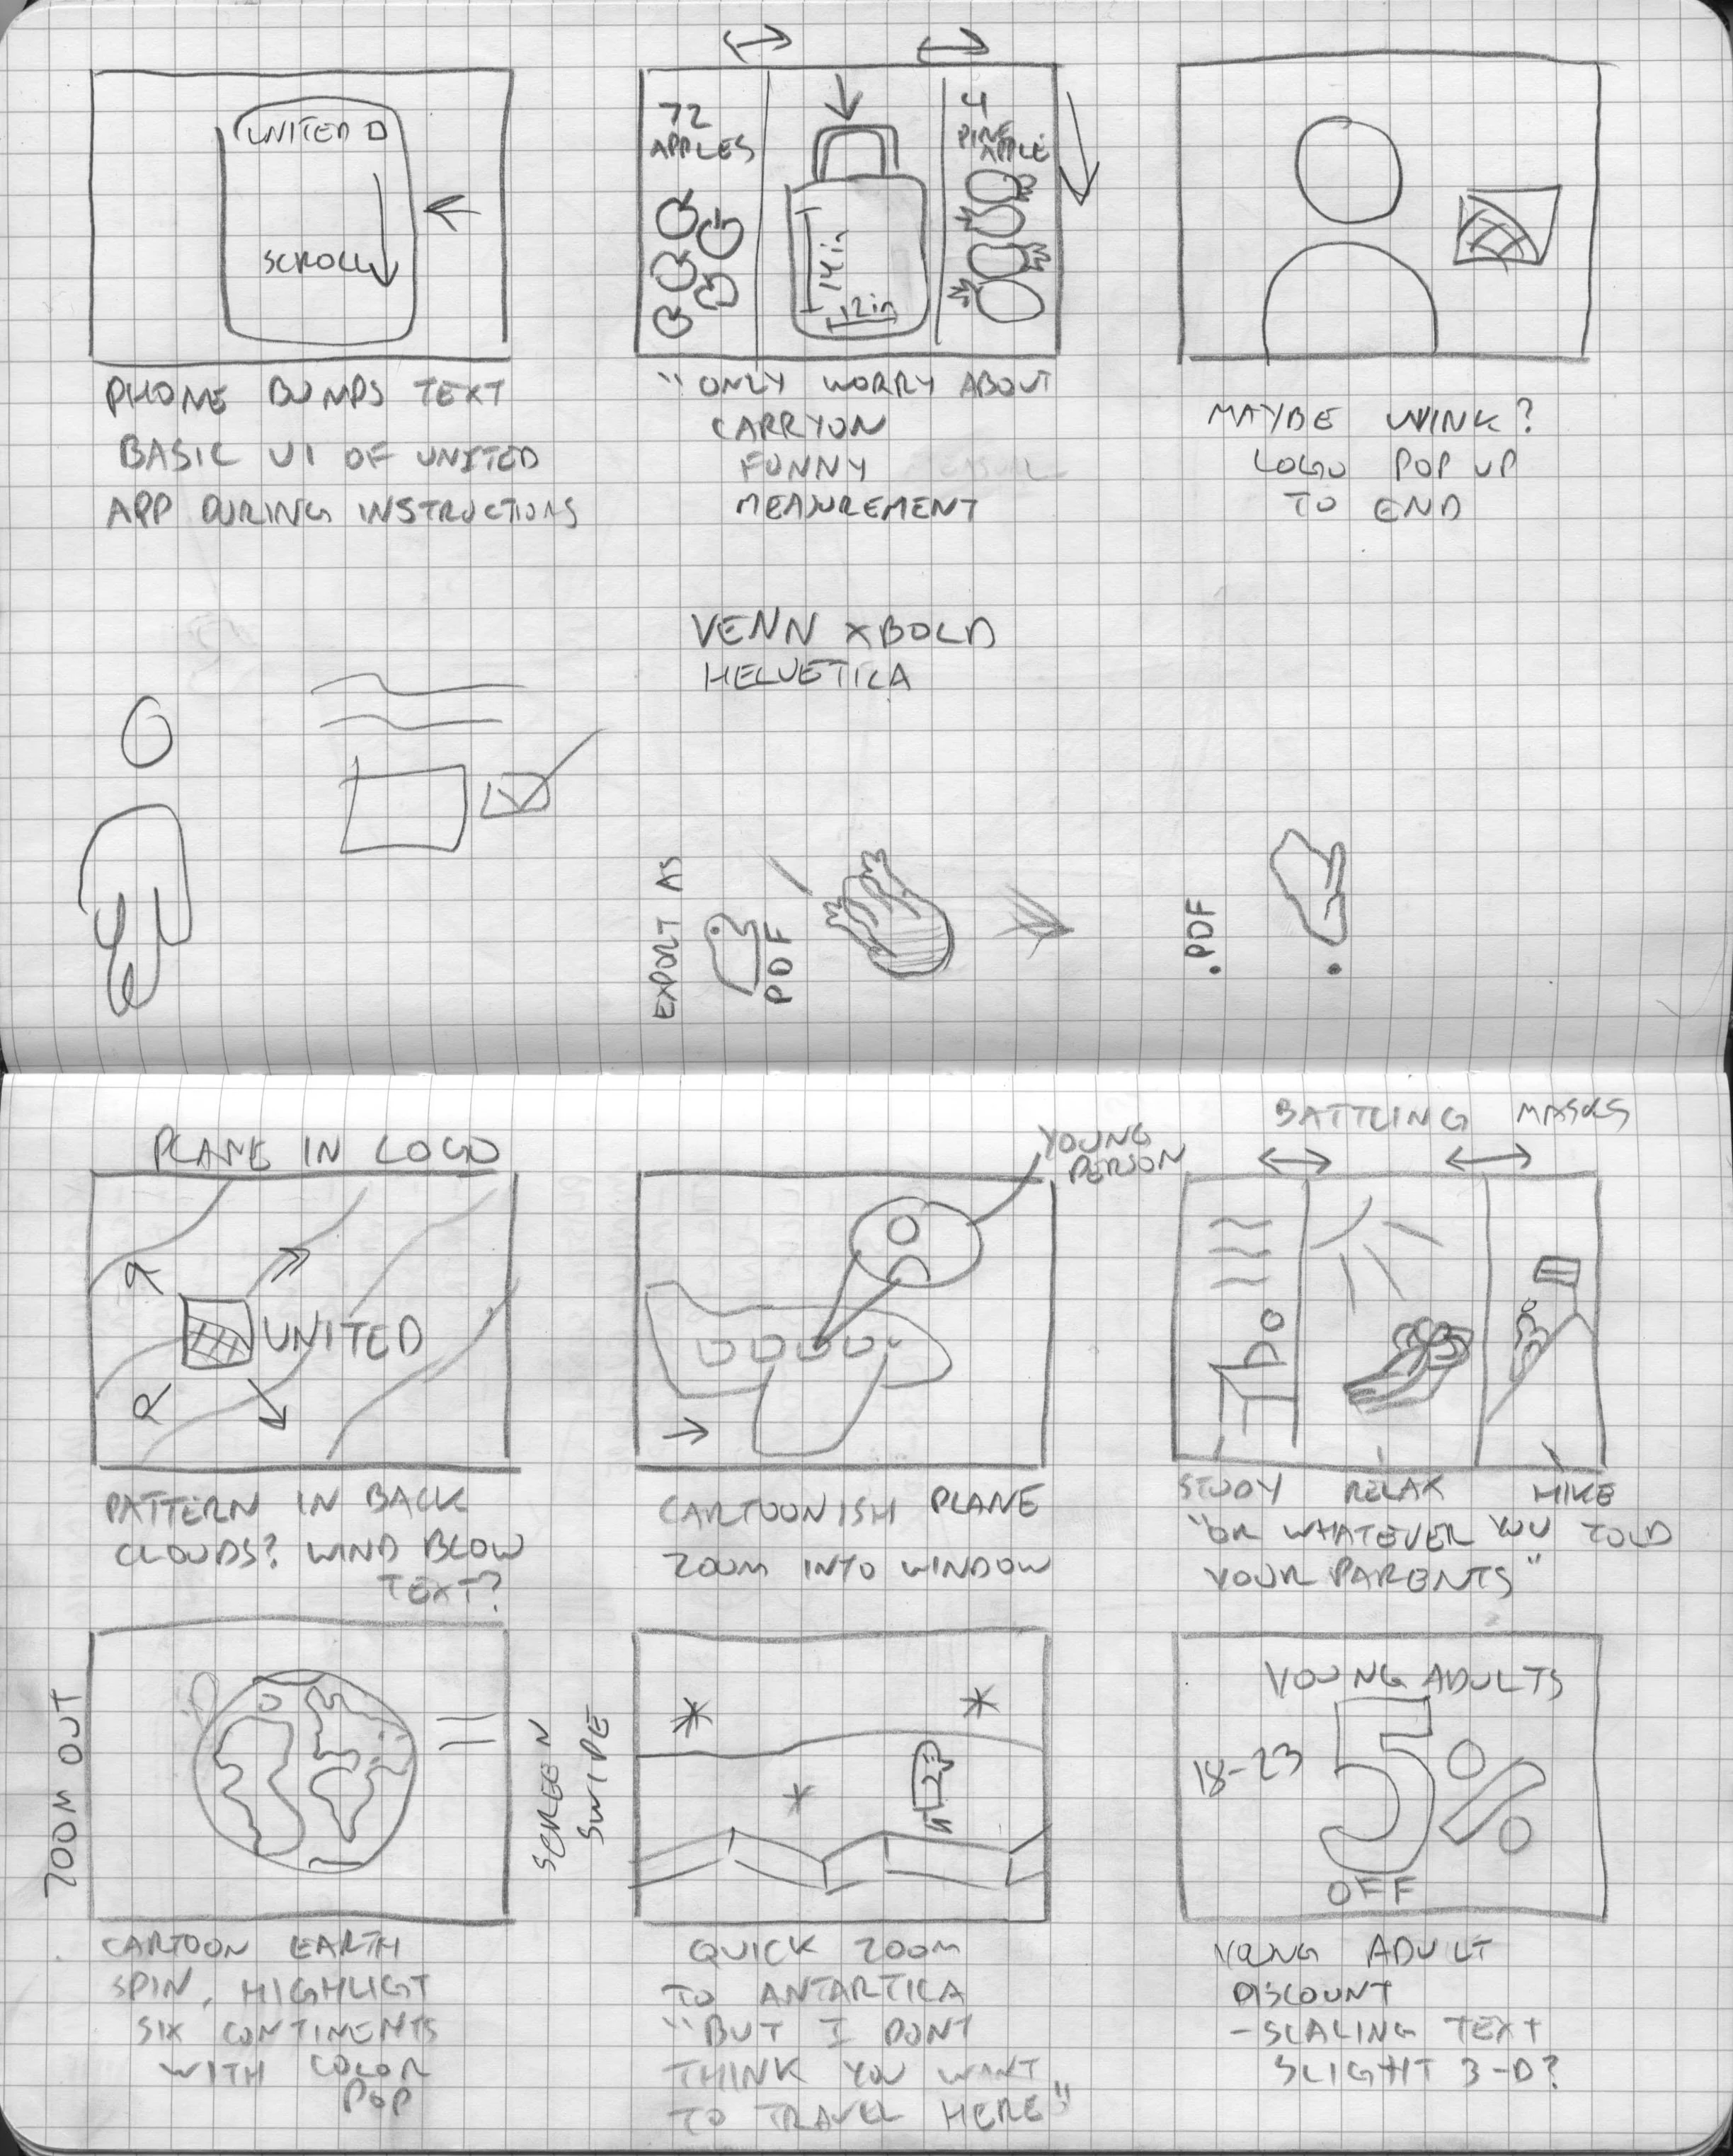 UNITED
SCROLL
PHONE BUMPS TEXT
BASIC UI OF UNITED
APP DURING INSTRUCTIONS
72
APPLES
14in
12in
4
PINE
APPLE
"ONLY WORRY ABOUT
CARRYON
FUNNY
MEASUREMENT
MAYBE WINK?
LOGO POP UP
TO END
VENN XBOLD
HELVETICA
EXPORT AS
PDF
.PDF
PLANE IN LOGO
UNITED
PATTERN IN BACK
CLOUDS? WIND BLOW
TEXT?
YOUNG
PERSON
CARTOONISH PLANE
ZOOM INTO WINDOW
BATTLING MASKS
STUDY RELAX HIKE
"OR WHATEVER YOU TOLD
YOUR PARENTS"
ZOOM OUT
CARTOON EARTH
SPIN, HIGHLIGT
SIX CONTINENTS
WITH COLOR
POP
SCREEN
SWIPE
QUICK ZOOM
TO ANTARTICA
"BUT I DONT
THINK YOU WANT
TO TRAVEL HERE"
YOUNG ADULTS
18-23
5%
OFF
YOUNG ADULT
DISCOUNT
-SCALING TEXT
SLIGHT 3-D?